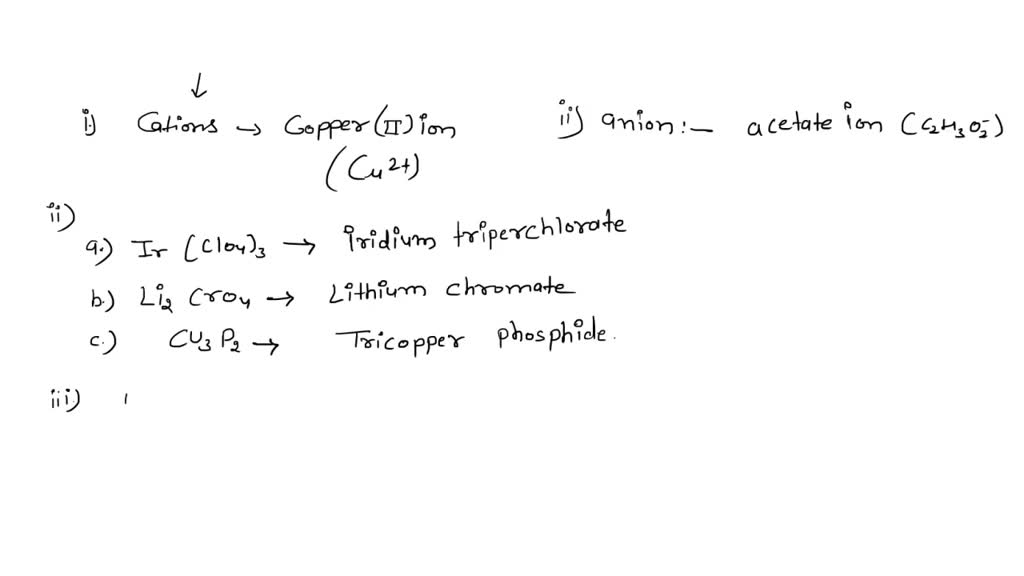 i) Cations → Copper(II) ion
(Cu2+)
ii) anion:- acetate ion (C2H3O2-)
ii)
a.) Ir (ClO4)3 → Iridium triperchlorate
b.) Li2 CrO4 → Lithium chromate
c.) CU3 P2 → Tricopper phosphide.
iii)